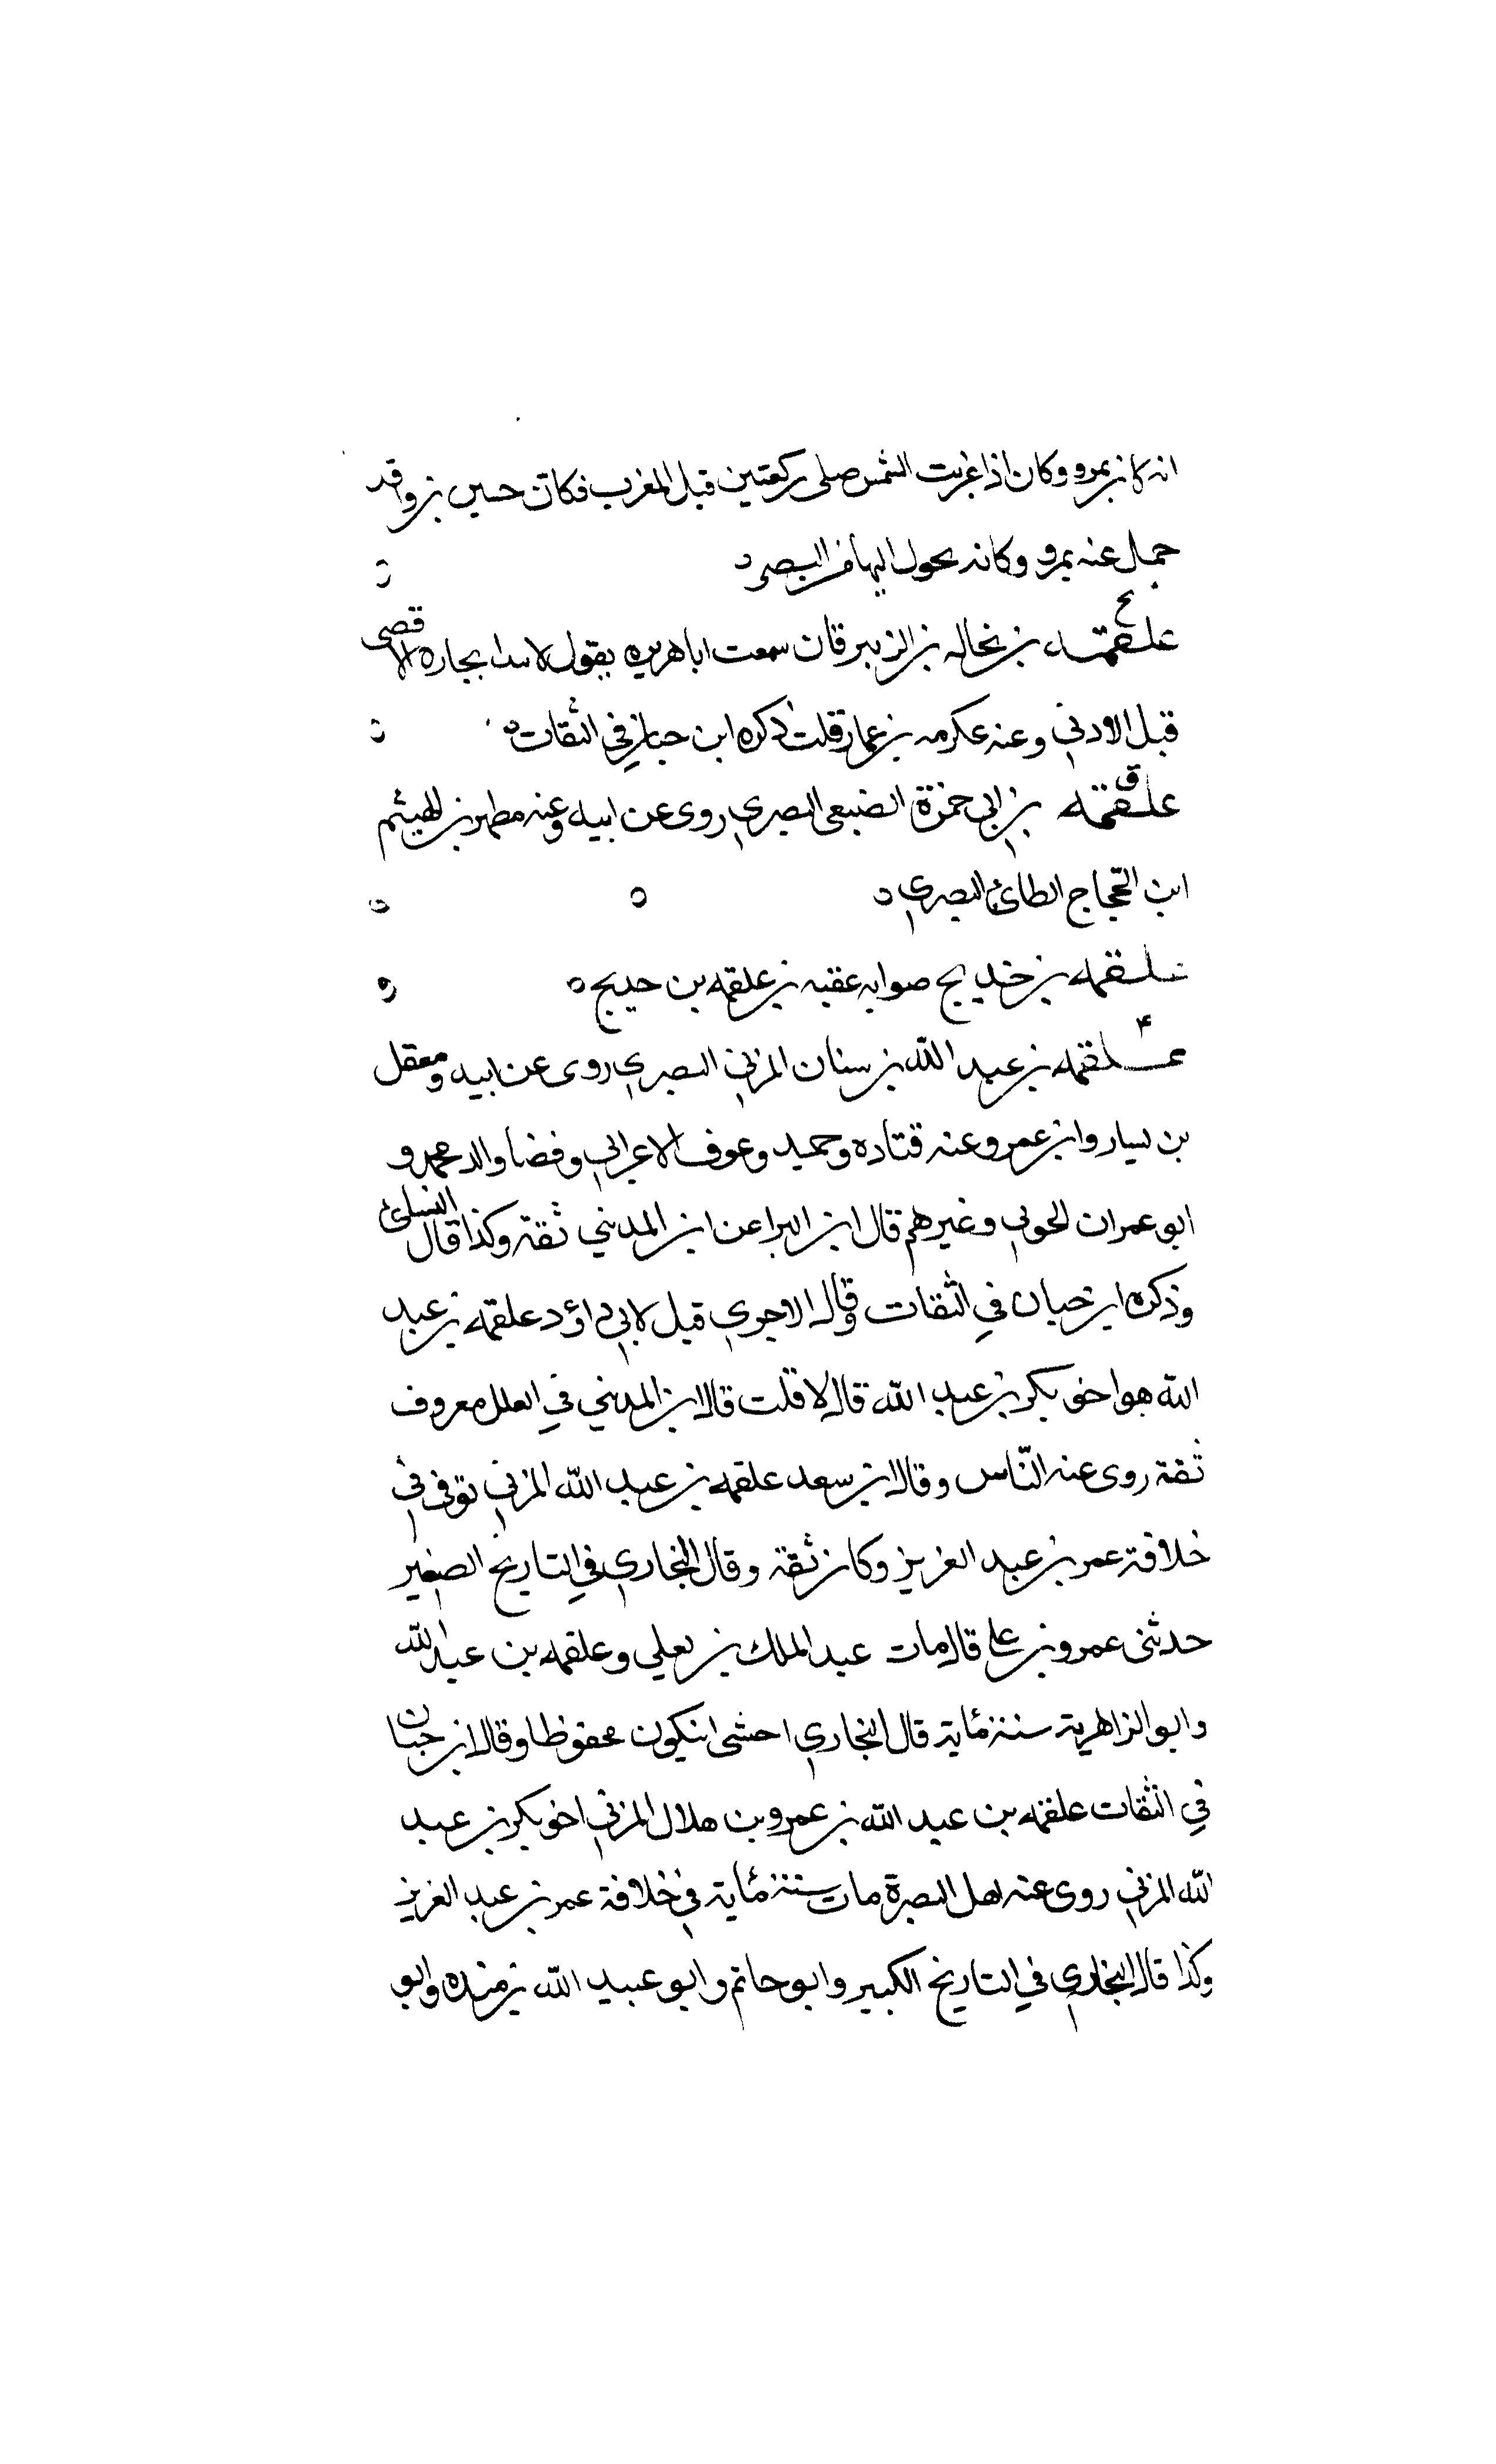 انه كان بمرو وكان اذا غربت الشمس صلى ركعتين قبل المغرب فكان حسين بن واقد
حمل عنه بمرو وكانه تحول اليها من البصره
علقمه بن بجاله بن الزبرقان سمعت اباهريره يقول لا يبدا بجاره الاقصى
قبل الادنى وعنه عكرمه بن عمار قلت ذكره ابن حبان في الثقات ه
علقمة بن ابي حمزة الضبعي البصري روى عن ابيه وعنه مطهر بن الهيثم
ابن الحجاج الطائي البصري ه
علقمه بن خديج صوابه عقبه بن علقمه بن حديج ه
علقمه بن عبد الله بن سنان المزني البصري روى عن ابيه ومعقل
بن يسار وابن عمر وعنه قتاده وحميد وعوف الاعرابي وفضا والد محمد و
ابو عمران الجوني وغيرهم قال ابن البرا عن ابن المديني ثقة وكذا قال النسائي
وذكره ابن حبان في الثقات وقال الاجري قيل لابي داؤد علقمه بن عبد
الله هو اخو بكر بن عبد الله قال لا قلت قال ابن المديني في العلل معروف
ثقة روى عنه الناس وقال ابن سعد علقمه بن عبد الله المزني توفى في
خلافة عمر بن عبد العزيز وكان ثقة وقال البخاري في التاريخ الصغير
حدثنى عمرو بن علي قال مات عبد الملك بن يعلي وعلقمه بن عبد الله
وابو الزاهرية سنة مئاية قال البخاري اخشى ان يكون محفوظا وقال ابن حبان
في الثقات علقمه بن عبد الله بن عمرو بن هلال المزني اخو بكر بن عبد
الله المزني روى عنه اهل البصرة مات سنة مئاية في خلافة عمر بن عبد العزيز
وكذا قال البخاري في التاريخ الكبير وابو حاتم وابو عبيد الله بن منده وابو